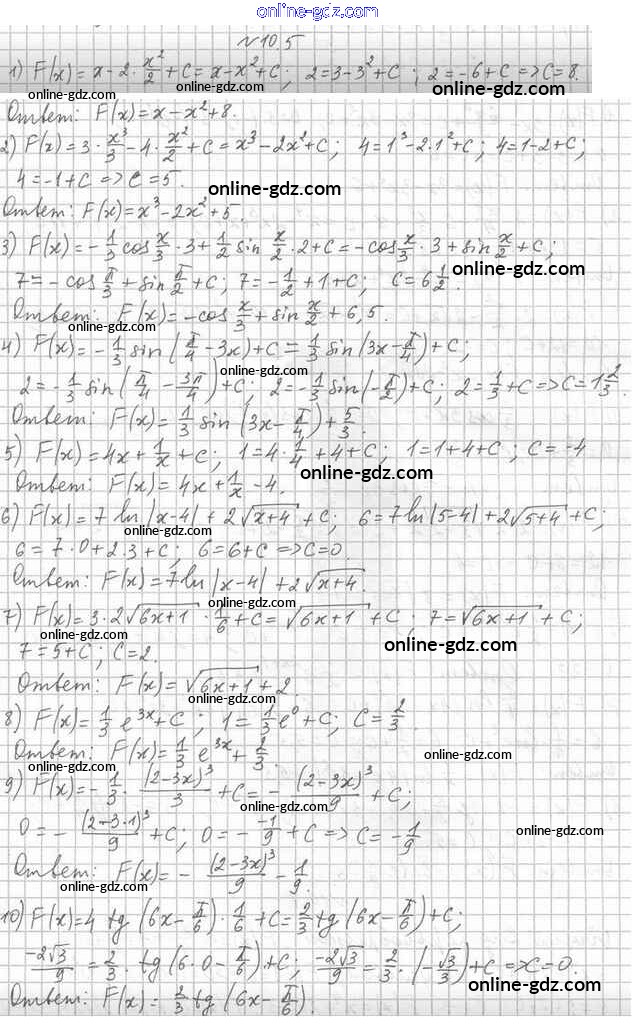 online-gdz.com
№10.5
1) F(x) = x - 2 · x²/2 + C = x - x² + C; 2 = 3 - 3² + C; 2 = -6 + C => C = 8.
online-gdz.com online-gdz.com
Ответ: F(x) = x - x² + 8.
2) F(x) = 3 · x³/3 - 4 · x²/2 + C = x³ - 2x² + C; 4 = 1³ - 2·1² + C; 4 = 1 - 2 + C;
4 = -1 + C => C = 5.
online-gdz.com
Ответ: F(x) = x³ - 2x² + 5.
3) F(x) = -1/3 cos x/3 · 3 + 1/2 sin x/2 · 2 + C = -cos x/3 · 3 + sin x/2 + C;
online-gdz.com
7 = -cos π/3 + sin π/2 + C; 7 = -1/2 + 1 + C; C = 6 1/2.
Ответ: F(x) = -cos x/3 + sin x/2 + 6,5.
online-gdz.com
4) F(x) = -1/3 sin(π/4 - 3x) + C = 1/3 sin(3x - π/4) + C;
online-gdz.com
2 = -1/3 sin(π/4 - 3π/4) + C; 2 = -1/3 sin(-π/2) + C; 2 = 1/3 + C => C = 1 2/3.
Ответ: F(x) = 1/3 sin(3x - π/4) + 5/3.
5) F(x) = 4x + 1/x + C; 1 = 4 · 1/4 + 4 + C; 1 = 1 + 4 + C; C = -4
online-gdz.com
Ответ: F(x) = 4x + 1/x - 4.
6) F(x) = 7 ln|x-4| + 2√(x+4) + C; 6 = 7 ln|5-4| + 2√(5+4) + C;
online-gdz.com
6 = 7 · 0 + 2·3 + C; 6 = 6 + C => C = 0.
Ответ: F(x) = 7 ln|x-4| + 2√(x+4).
online-gdz.com
7) F(x) = 3·2√(6x+1) · 1/6 + C = √(6x+1) + C; 7 = √(6x+1) + C;
online-gdz.com online-gdz.com
7 = 5 + C; C = 2.
Ответ: F(x) = √(6x+1) + 2.
online-gdz.com
8) F(x) = 1/3 e^(3x) + C; 1 = 1/3 e⁰ + C; C = 2/3.
Ответ: F(x) = 1/3 e^(3x) + 2/3.
online-gdz.com online-gdz.com
9) F(x) = -1/3 · (2-3x)³/3 + C = -(2-3x)³/9 + C;
online-gdz.com
0 = -(2-3·1)³/9 + C; 0 = - -1/9 + C => C = -1/9
online-gdz.com
Ответ: F(x) = -(2-3x)³/9 - 1/9.
online-gdz.com
10) F(x) = 4 tg(6x - π/6) · 1/6 + C = 2/3 tg(6x - π/6) + C;
-2√3/9 = 2/3 · tg(6·0 - π/6) + C; -2√3/9 = 2/3 · (-√3/3) + C => C = 0.
online-gdz.com
Ответ: F(x) = 2/3 tg(6x - π/6).
online-gdz.com